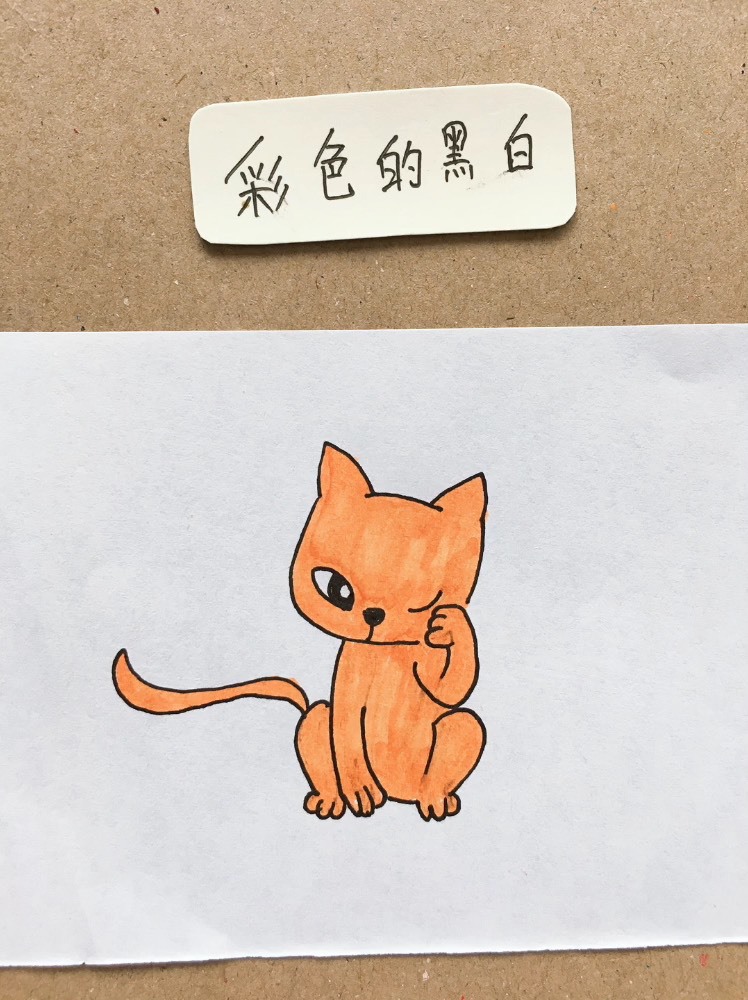 彩色的黑白